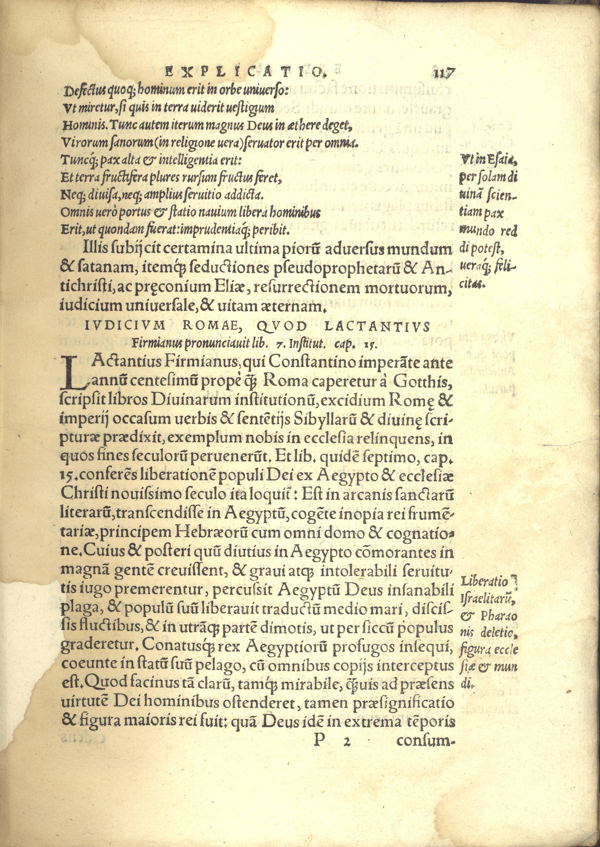 EXPLICATIO. 117
Defectus quoq; hominum erit in orbe universo:
Vt miretur, si quis in terra uiderit uestigium
Hominis. Tunc autem iterum magnus Deus in æthere deget,
Virorum sanorum (in religione uera) seruator erit per omnia.
Tuncq; pax alta & intelligentia erit:
Et terra fructifera plures rursum fructus feret,
Neq; diuisa, neq; amplius seruitio addicta.
Omnis uerò portus & statio nauium libera hominibus
Erit, ut quondam fuerat: imprudentiaq; peribit.
Vt in Esaia,
per solam di
uinā scien-
tiam pax
mundo red
di potest,
ueraq; feli-
citas.
Illis subijcit certamina ultima piorū aduersus mundum
& satanam, itemq́; seductiones pseudoprophetarū & An-
tichristi, ac pręconium Eliæ, resurrectionem mortuorum,
iudicium uniuersale, & uitam æternam.
IVDICIVM ROMAE, QVOD LACTANTIVS
Firmianus pronunciauit lib. 7. Institut. cap. 15.
LActantius Firmianus, qui Constantino imperāte ante
annū centesimū propè q̃; Roma caperetur à Gotthis,
scripsit libros Diuinarum institutionū, excidium Romę &
imperij occasum uerbis & sentētijs Sibyllarū & diuinę scri-
pturæ prædixit, exemplum nobis in ecclesia relinquens, in
quos fines seculorū peruenerūt. Et lib. quidē septimo, cap.
15. conferēs liberationē populi Dei ex Aegypto & ecclesiæ
Christi nouissimo seculo ita loquit̃: Est in arcanis sanctarū
literarū, transcendisse in Aegyptū, cogēte inopia rei frumē-
tariæ, principem Hebræorū cum omni domo & cognatio-
ne. Cuius & posteri quū diutius in Aegypto cōmorantes in
magnā gentē creuissent, & graui atq; intolerabili seruitu-
tis iugo premerentur, percussit Aegyptū Deus insanabili
plaga, & populū suū liberauit traductū medio mari, discis-
sis fluctibus, & in utrāq; partē dimotis, ut per siccū populus
graderetur. Conatusq; rex Aegyptiorū profugos insequi,
coeunte in statū suū pelago, cū omnibus copijs interceptus
est. Quod facinus tā clarū, tamq́; mirabile, q̃uis ad præsens
uirtutē Dei hominibus ostenderet, tamen præsignificatio
& figura maioris rei fuit: quā Deus idē in extrema tēporis
Liberatio
Israelitarū,
& Pharao
nis deletio,
figura eccle
siæ & mun
di.
P 2 consum-